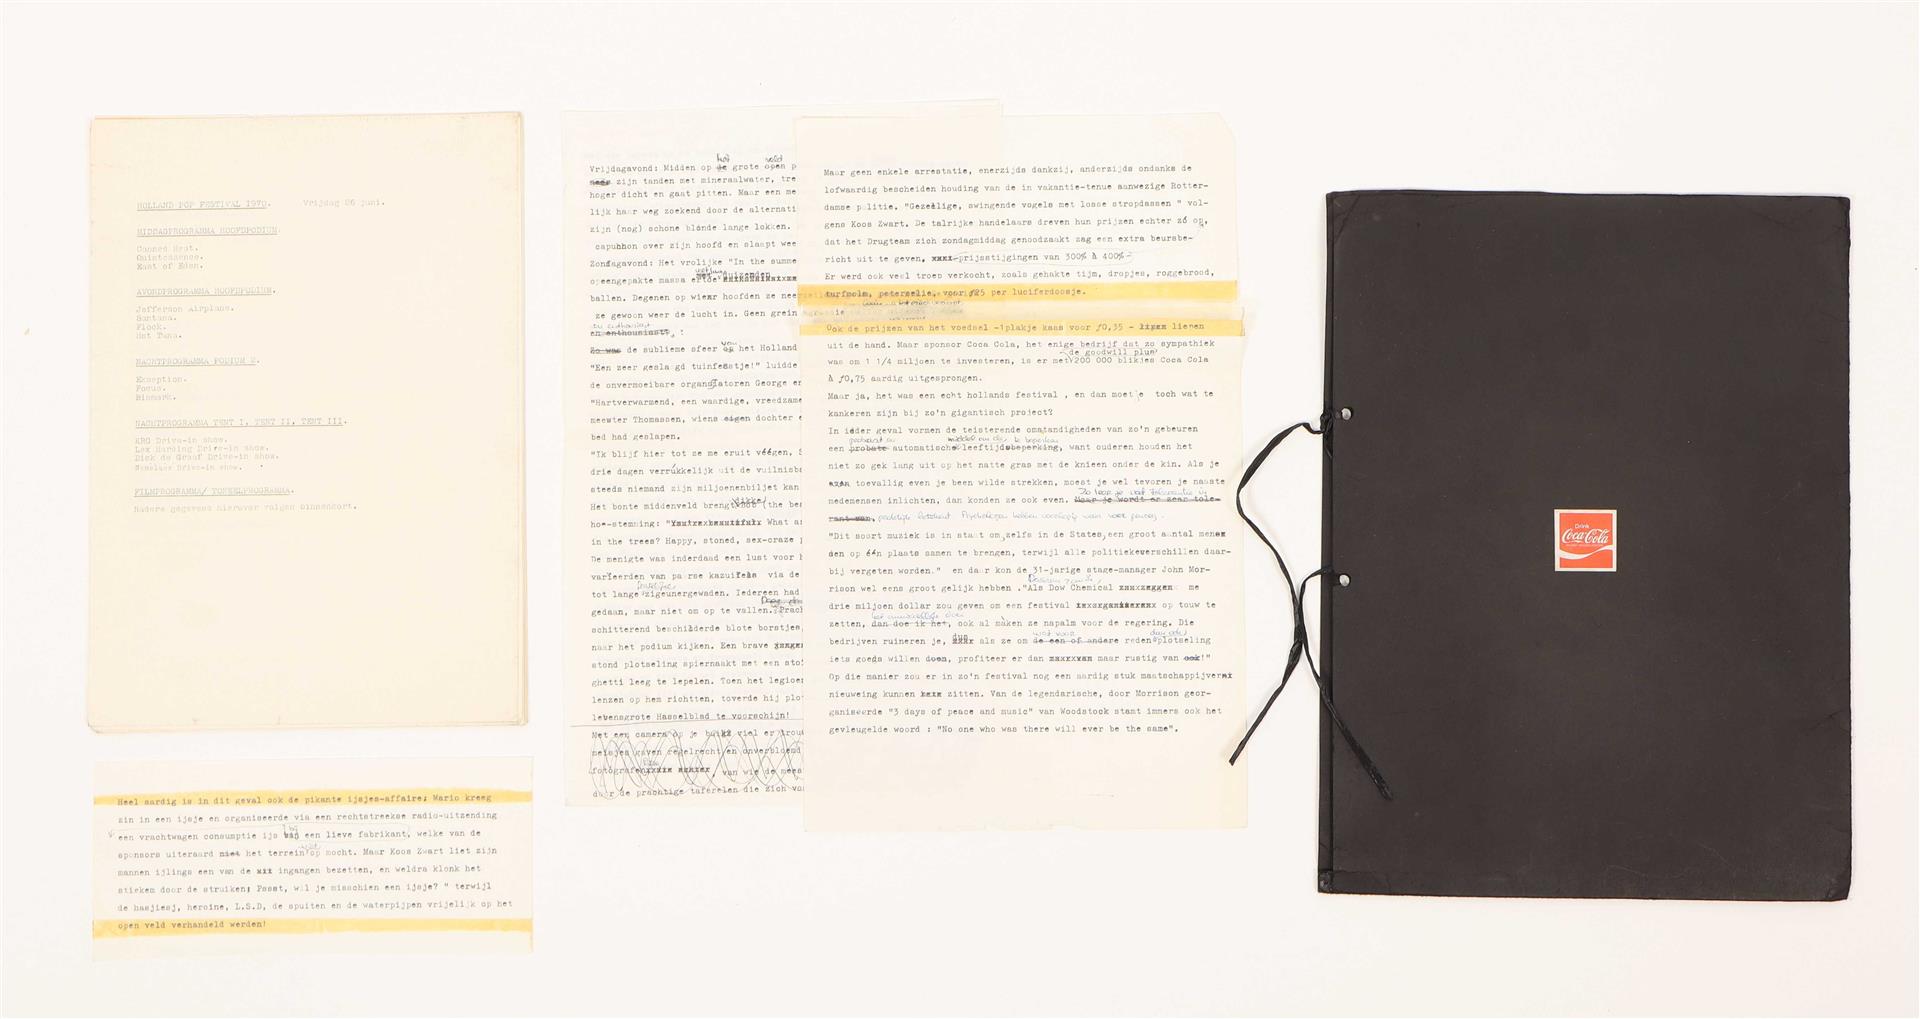 HOLLAND POP FESTIVAL 1970. Vrijdag 26 juni.
MIDDAGPROGRAMMA HOOFDPODIUM.
Canned Heat.
Quintessence.
East of Eden.
AVONDPROGRAMMA HOOFDPODIUM.
Jefferson Airplane.
Santana.
Flock.
Hot Tuna.
NACHTPROGRAMMA PODIUM 2.
Exception.
Focus.
Bismark.
NACHTPROGRAMMA TENT I, TENT II, TENT III.
KRO Drive-in show.
Lex Harding Drive-in show.
Dick de Graaf Drive-in show.
Drive-in show.
FILMPROGRAMMA/ TONEELPROGRAMMA.
Nadere gegevens hierover volgen binnenkort.
Heel aardig is in dit geval ook de pikante ijsjes-affaire; Mario kreeg
zin in een ijsje en organiseerde via een rechtstreekse radio-uitzending
een vrachtwagen consumptie ijs bij een lieve fabrikant, welke van de
sponsors uiteraard niet het terrein op mocht. Maar Koos Zwart liet zijn
mannen ijlings een van de ingangen bezetten, en weldra klonk het
stiekem door de struiken; Pssst, wil je misschien een ijsje? " terwijl
de hasjiesj, heroine, L.S.D, de spuiten en de waterpijpen vrijelijk op het
open veld verhandeld werden!
Vrijdagavond: Midden op het grote open veld p
zijn tanden met mineraalwater, tre
hoger dicht en gaat pitten. Maar een me
lijk haar weg zoekend door de alternati
zijn (nog) schone blonde lange lokken.
capuhhon over zijn hoofd en slaapt wee
Zondagavond: Het vrolijke "In the summe
opeengepakte massa
ballen. Degenen op wier hoofden ze neer
ze gewoon weer de lucht in. Geen grein
en enthousiast
Zo was de sublieme sfeer van het Holland
"Een zeer geslagd tuinfeestje!" luidde
de onvermoeibare organisatoren George en
"Hartverwarmend, een waardige, vreedzame
meester Thomassen, wiens eigen dochter e
bed had geslapen.
"Ik blijf hier tot ze me eruit véégen, S
drie dagen verrukkelijk uit de vuilnisba
steeds niemand zijn miljoenenbiljet kan
Het bonte middenveld brengt dikke Bob (the bea
ho-stemming: What ar
in the trees? Happy, stoned, sex-craze p
De menigte was inderdaad een lust voor h
varieerden van paarse kazuifels via de
tot lange zigeunergewaden. Iedereen had
gedaan, maar niet om op te vallen. Prach
schitterend beschilderde blote borstjes,
naar het podium kijken. Een brave
stond plotseling spiernaakt met een sto
ghetti leeg te lepelen. Toen het legioen
lenzen op hem richtten, toverde hij plo
levensgrote Hasselblad te voorschijn!
Met een camera op je buik viel er trou
meisjes gaven regelrecht en onverbloemd
fotografen , van wie de meest
door de prachtige taferelen die zich vo
Maar geen enkele arrestatie, enerzijds dankzij, anderzijds ondanks de
lofwaardig bescheiden houding van de in vakantie-tenue aanwezige Rotter-
damse politie. "Gezellige, swingende vogels met losse stropdassen " vol-
gens Koos Zwart. De talrijke handelaars dreven hun prijzen echter zó op,
dat het Drugteam zich zondagmiddag genoodzaakt zag een extra beursbe-
richt uit te geven, prijsstijgingen van 300% à 400%
Er werd ook veel troep verkocht, zoals gehakte tijm, dropjes, roggebrood,
turfmolm, peterselie, voor ƒ25 per luciferdoosje.
Ook de prijzen van het voedsel -1 plakje kaas voor ƒ0,35 - liepen
uit de hand. Maar sponsor Coca Cola, het enige bedrijf dat zo sympathiek
was om 1 1/4 miljoen te investeren, is er met de goodwill plus 200 000 blikjes Coca Cola
à ƒ0,75 aardig uitgesprongen.
Maar ja, het was een echt hollands festival , en dan moet je toch wat te
kankeren zijn bij zo'n gigantisch project?
In ieder geval vormen de teisterende omstandigheden van zo'n gebeuren
een probate automatische leeftijdsbeperking, want ouderen houden het
niet zo gek lang uit op het natte gras met de knieen onder de kin. Als je
toevallig even je been wilde strekken, moest je wel tevoren je naaste
medemensen inlichten, dan konden ze ook even. Maar je wordt er zeer tole-
rant van,
"Dit soort muziek is in staat om, zelfs in de States, een groot aantal mensen
den op één plaats samen te brengen, terwijl alle politieke verschillen daar-
bij vergeten worden." en daar kon de 31-jarige stage-manager John Mor-
rison wel eens groot gelijk hebben ."Als Dow Chemical me
drie miljoen dollar zou geven om een festival op touw te
zetten, dan doe ik het, ook al maken ze napalm voor de regering. Die
bedrijven ruineren je, dus als ze om de een of andere reden plotseling
iets goeds willen doen, profiteer er dan maar rustig van ook!"
Op die manier zou er in zo'n festival nog een aardig stuk maatschappijver
nieuweing kunnen zitten. Van de legendarische, door Morrison geor-
ganiseerde "3 days of peace and music" van Woodstock stamt immers ook het
gevleugelde woord : "No one who was there will ever be the same".
Drink
Coca-Cola